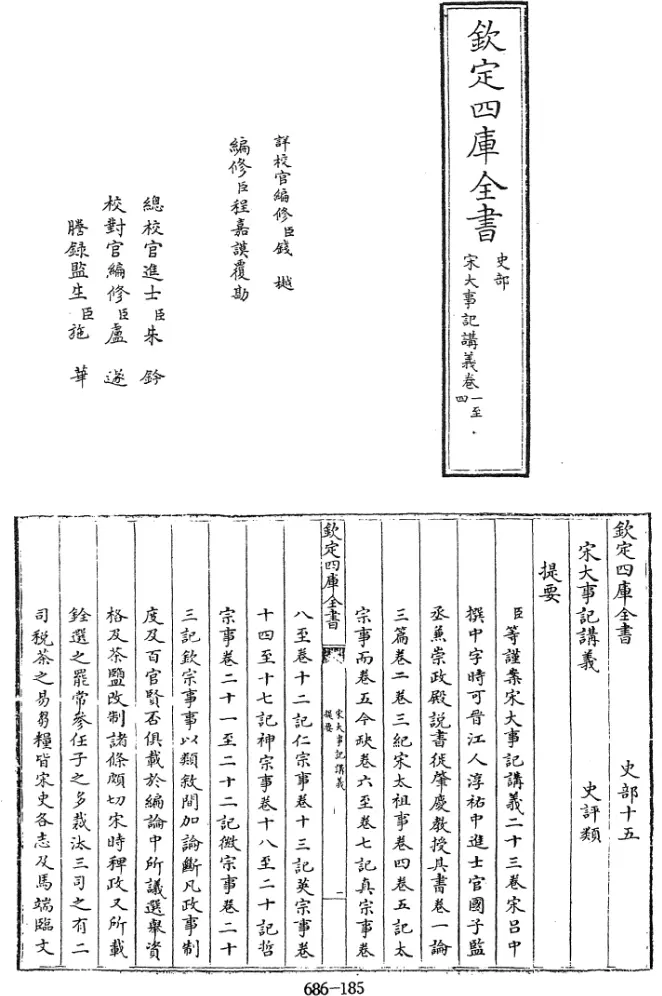 欽定四庫全書
史部
宋大事記講義卷一至四
詳校官編修臣錢樾
編修臣程嘉謨覆勘
總校官進士臣朱鈐
校對官編修臣盧遂
謄錄監生臣施華
欽定四庫全書
史部十五
宋大事記講義
史評類
提要
臣等謹案宋大事記講義二十三卷宋呂中
撰中字時可晉江人淳祐中進士官國子監
丞兼崇政殿說書徙肇慶教授其書卷一論
三篇卷二卷三紀宋太祖事卷四卷五記太
宗事而卷五今缺卷六至卷七記真宗事卷
欽定四庫全書
宋大事記講義
提要
一
八至卷十二記仁宗事卷十三記英宗事卷
十四至十七記神宗事卷十八至二十記哲
宗事卷二十一至二十二記徽宗事卷二十
三記欽宗事事以類敘間加論斷凡政事制
度及百官賢否俱載於編論中所議選舉資
格及茶鹽改制諸條頗切宋時稗政又所載
銓選之罷常參任子之多裁汰三司之有二
司稅茶之易芻糧皆宋史各志及馬端臨文
686-185